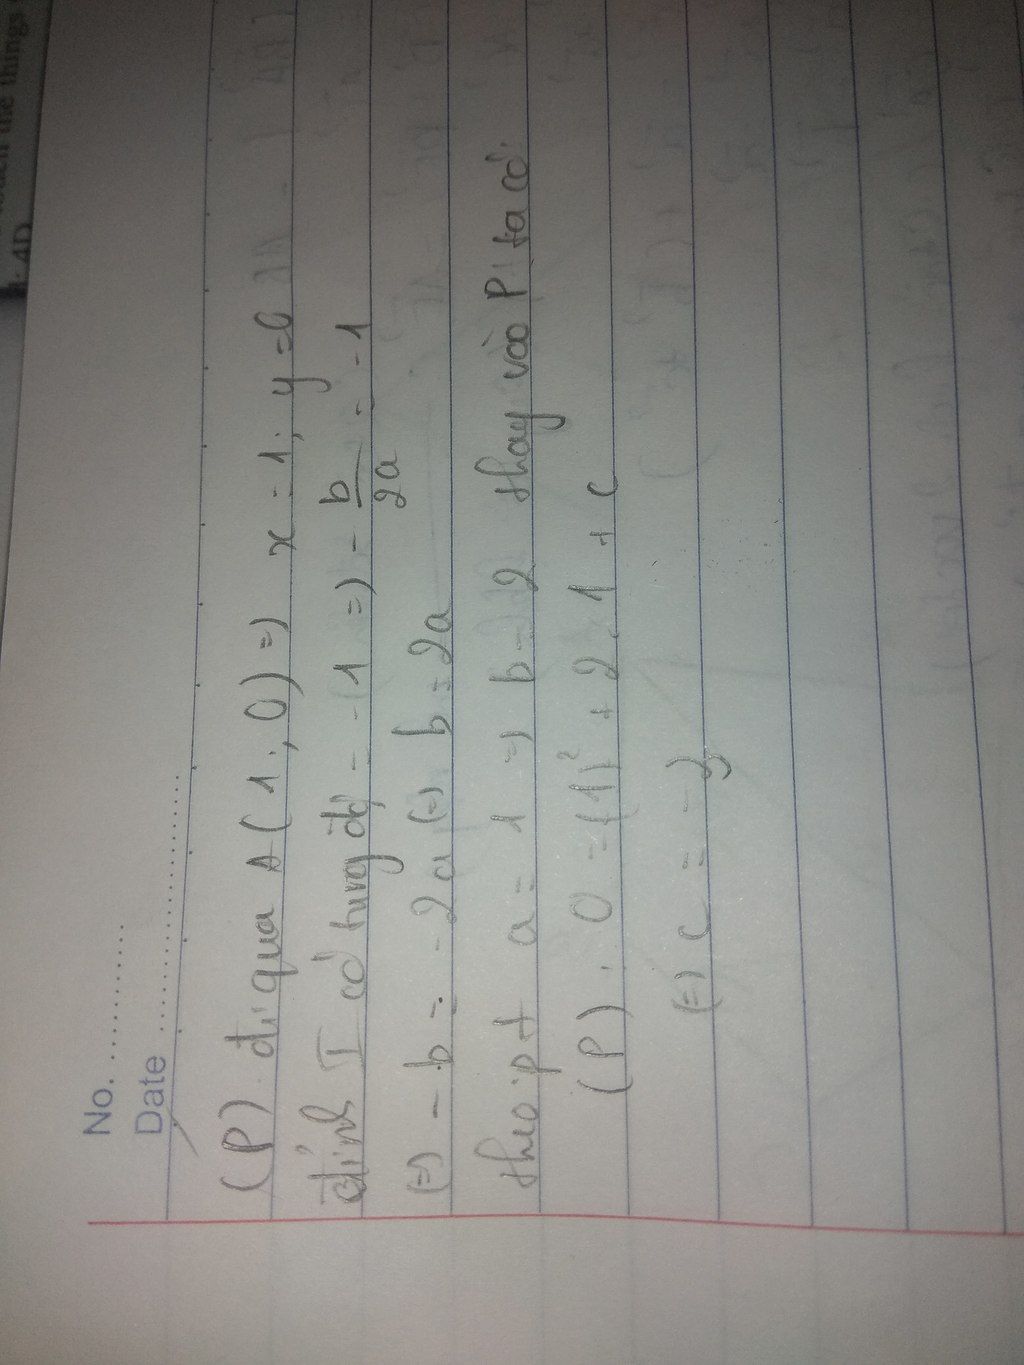 No. ............
Date ............
(P) đi qua A (1; 0) => x = 1; y = 0
đỉnh I có tung độ = -1 => - b/2a = -1
(=) - b = - 2a (=) b = 2a
theo pt a = 1 => b = 2 thay vào P ta có:
(P): 0 = (1)² + 2.1 + c
(=) c = -3
4D
the things